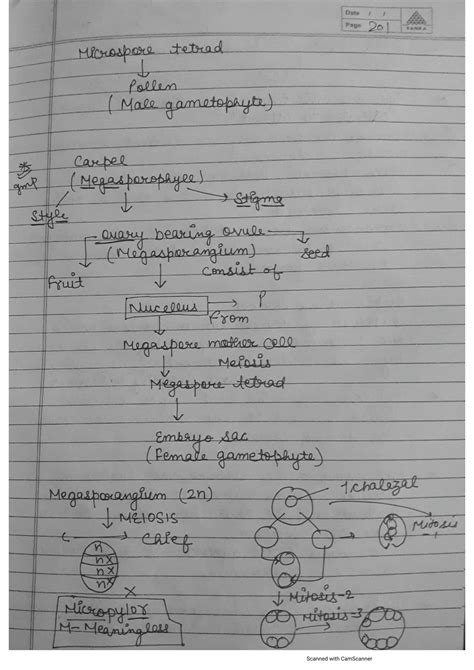 Date / /
Page 201
Microspore tetrad
Pollen
(Male gametophyte)
Carpel
(Megasporophyll)
Imp
Style
Stigma
ovary bearing ovule
seed
(Megasporangium)
Fruit
consist of
Nucellus
P
From
Megaspore mother cell
Meiosis
Megaspore tetrad
Embryo sac
(Female gametophyte)
Megasporangium (2n)
1. chalazal
MEIOSIS
Chief
Mitosis
-1
n
nx
nx
nx
x
Mitosis-2
Mitosis-3
Micropylar
M- Meaningless
Scanned with CamScanner